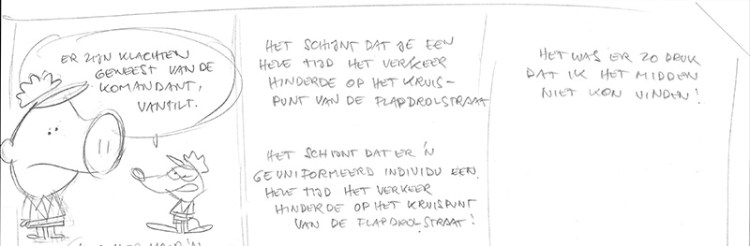 ER ZIJN KLACHTEN
GEWEEST VAN DE
KOMANDANT,
VANTILT.
HET SCHIJNT DAT JE EEN
HELE TIJD HET VERKEER
HINDERDE OP HET KRUIS-
PUNT VAN DE FLAPDROLSTRAAT
HET SCHIJNT DAT ER 'N
GEUNIFORMEERD INDIVIDU EEN
HELE TIJD HET VERKEER
HINDERDE OP HET KRUISPUNT
VAN DE FLAPDROLSTRAAT!
HET WAS ER ZO DRUK
DAT IK HET MIDDEN
NIET KON VINDEN!